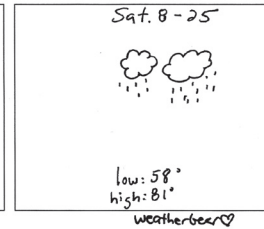 Sat. 8-25
low: 58°
high: 81°
weatherbear♡